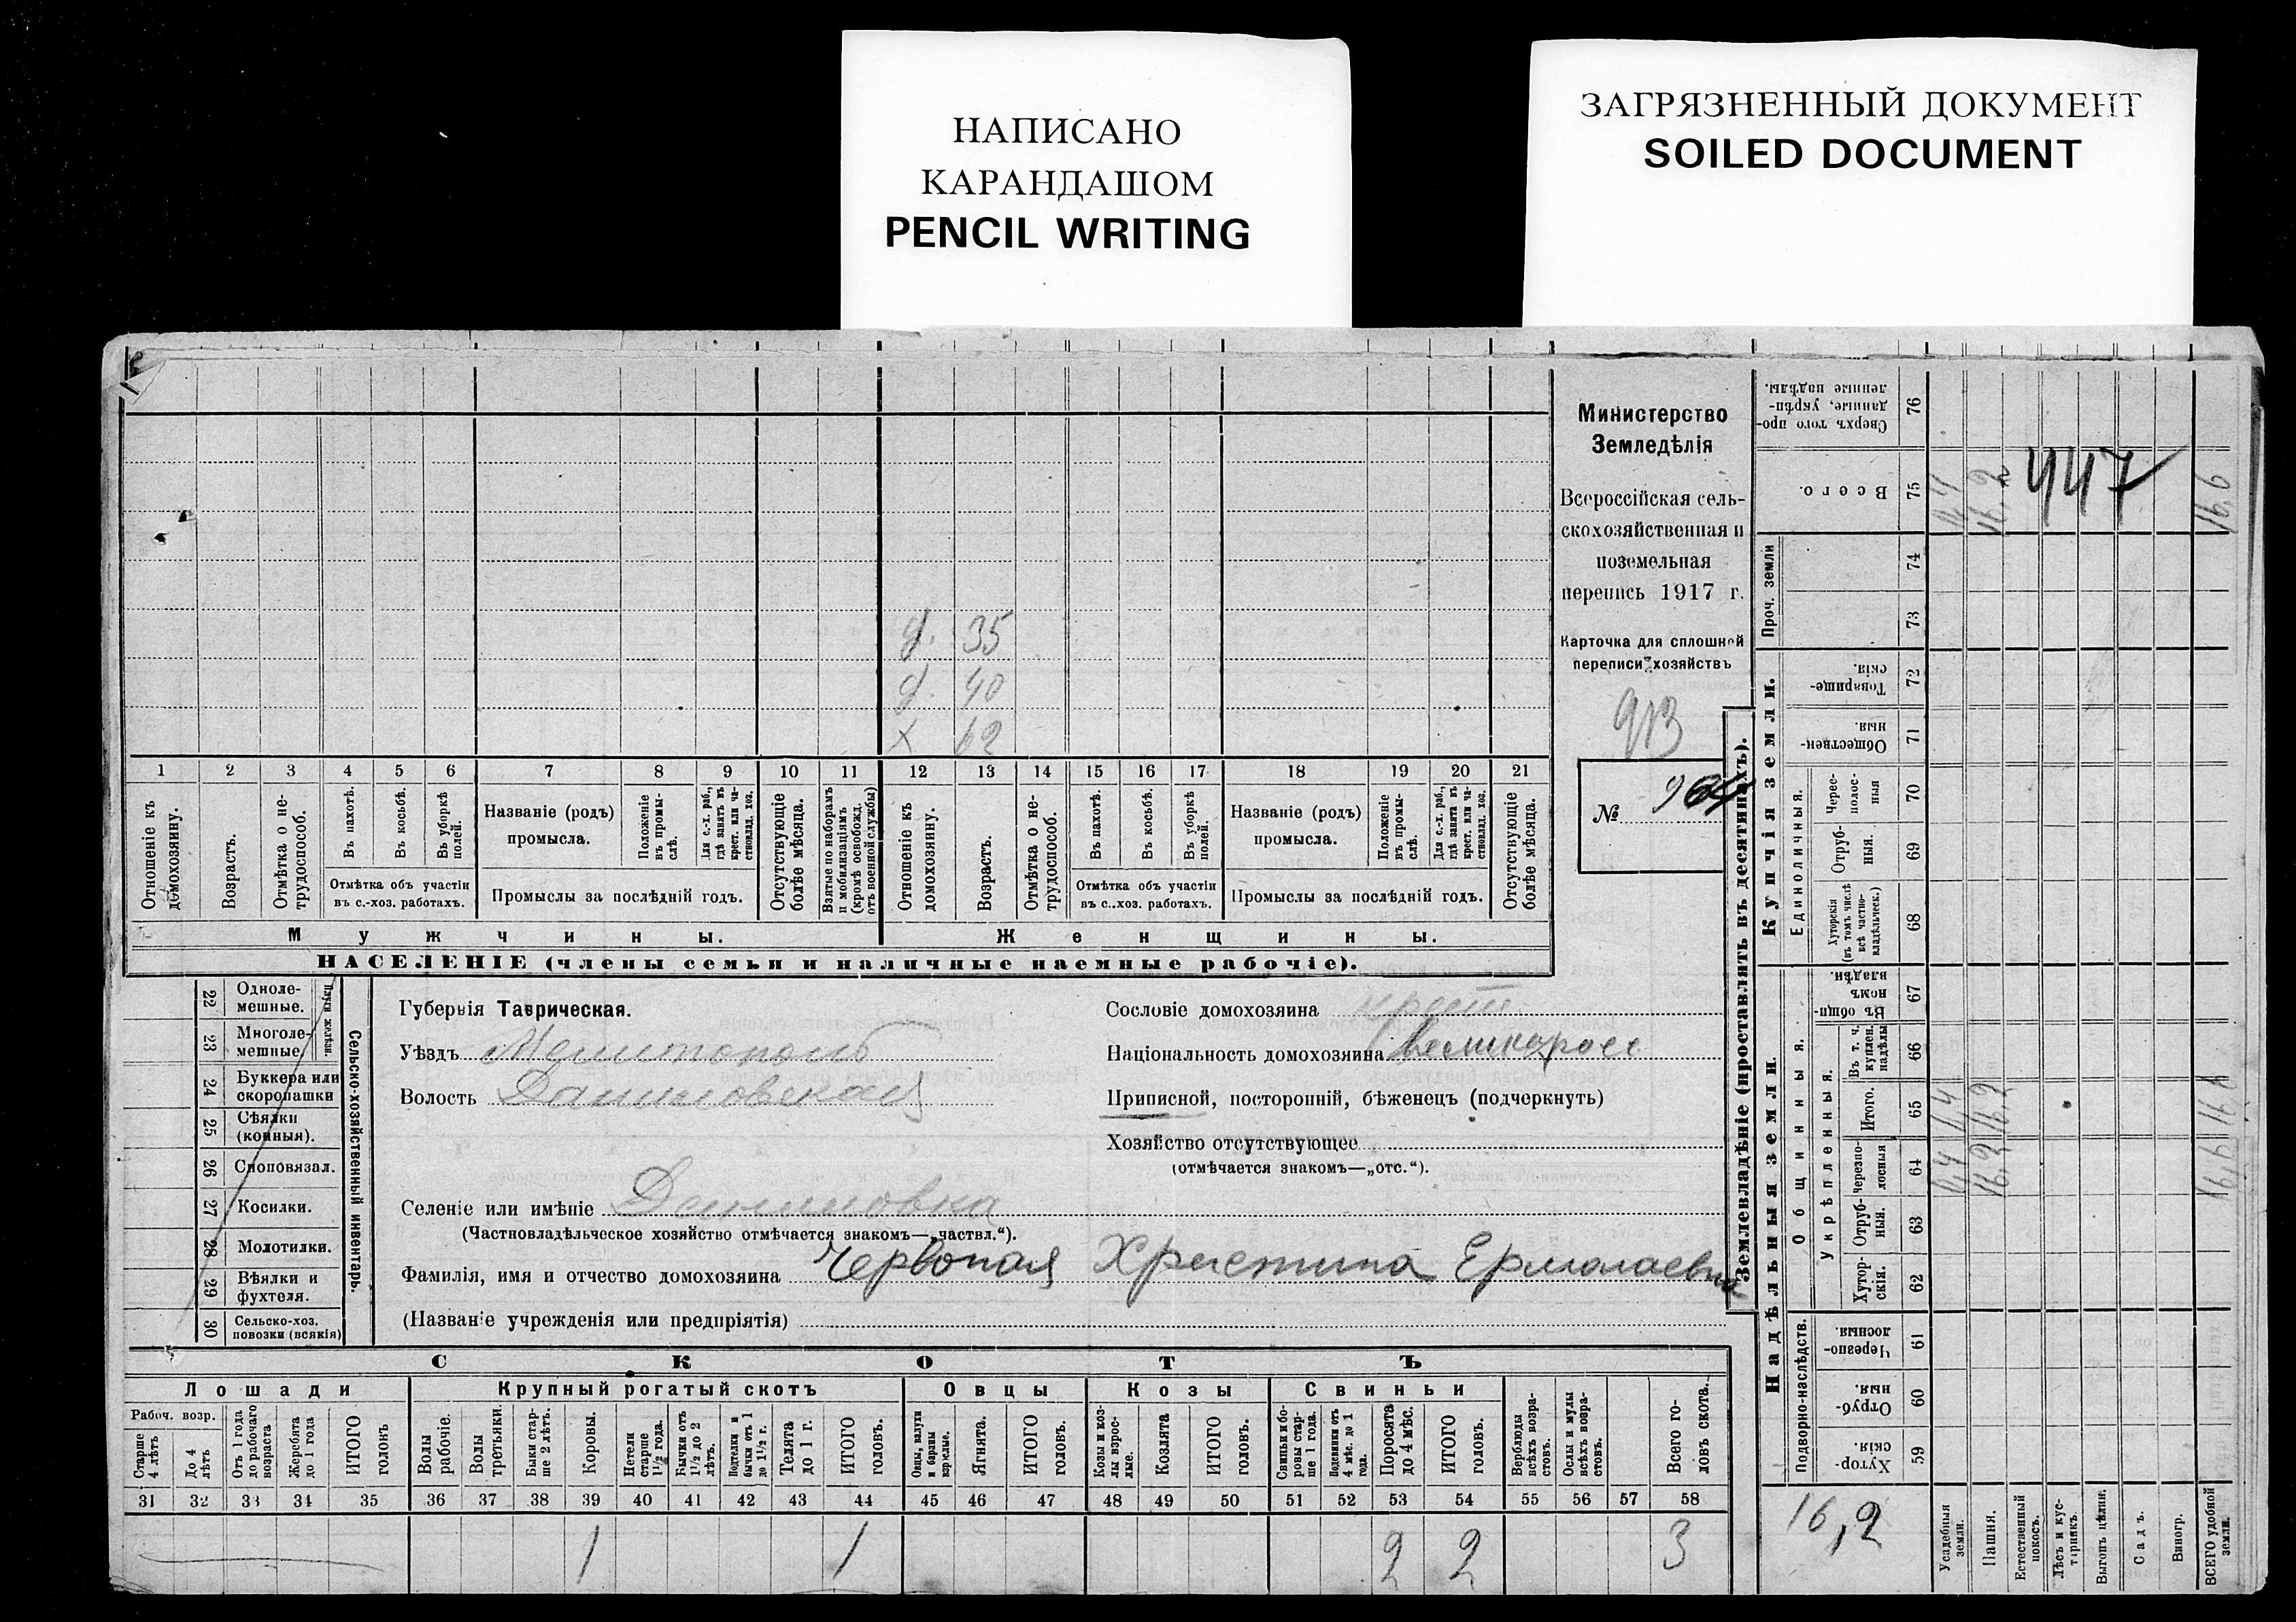 НАПИСАНО
КАРАНДАШОМ
PENCIL WRITING
ЗАГРЯЗНЕННЫЙ ДОКУМЕНТ
SOILED DOCUMENT
Министерство
Земледѣлія
Всероссійская сель-
скохозяйственная и
поземельная
перепись 1917 г.
Карточка для сплошной
переписи хозяйствъ
913
№ 964
д. 35
д. 40
х 62
1 2 3 4 5 6 7 8 9 10 11 12 13 14 15 16 17 18 19 20 21
Отношеніе къ домохозяину.
Возрастъ.
Отмѣтка о не-трудоспособ.
Въ пахотѣ.
Въ косьбѣ.
Въ уборкѣ полей.
Отмѣтка объ участіи
въ с.-хоз. работахъ.
Названіе (родъ)
промысла.
Положеніе въ промы-слѣ.
Для с.-х. раб., гдѣ занятъ въ крест. или ча-стновлад. хоз.
Промыслы за послѣдній годъ.
Отсутствующіе болѣе мѣсяца.
Взятые по наборамъ и мобилизаціямъ (кромѣ освобожд. отъ военной службы)
Отношеніе къ домохозяину.
Возрастъ.
Отмѣтка о не-трудоспособ.
Въ пахотѣ.
Въ косьбѣ.
Въ уборкѣ полей.
Отмѣтка объ участіи
въ с..хоз. работахъ.
Названіе (родъ)
промысла.
Положеніе въ промы-слѣ.
Для с.-х. раб., гдѣ занята въ крест. или ча-стновлад. хоз.
Промыслы за послѣдній годъ.
Отсутствующіе болѣе мѣсяца.
Мужчины.
Женщины.
НАСЕЛЕНІЕ (члены семьи и наличные наемные рабочіе).
22 Одноле-мешные.
23 Многоле-мешные.
24 Буккера или скоропашки
25 Сѣялки (конныя).
26 Сноповязал.
27 Косилки.
28 Молотилки.
29 Вѣялки и фухтеля.
30 Сельско-хоз. повозки (всякія)
Сельско-хозяйственный инвентарь.
Губернія Таврическая.
Уѣздъ Мелитополь
Волость Даниловская
Селеніе или имѣніе Даниловка
(Частновладѣльческое хозяйство отмѣчается знакомъ—„частвл.“).
Фамилія, имя и отчество домохозяина Червоная Христина Ермолаевна
(Названіе учрежденія или предпріятія)
Сословіе домохозяина крест.
Національность домохозяина великоросс
Приписной, посторонній, бѣженецъ (подчеркнуть)
Хозяйство отсутствующее
(отмѣчается знакомъ—„отс.“).
СКОТЪ
Лошади
Крупный рогатый скотъ
Овцы
Козы
Свиньи
Рабоч. возр.
Старше 4 лѣтъ
До 4 лѣтъ
Отъ 1 года до рабочаго возраста
Жеребята до 1 года
ИТОГО головъ
Волы рабочіе.
Волы третьяки.
Быки стар-ше 2 лѣтъ.
Коровы.
Нетели старше 1½ года.
Бычки отъ 1½ до 2 лѣтъ.
Подтелки и бычки отъ 1 до 1½ г.
Телята до 1 г.
ИТОГО головъ.
Овцы, валухи и бараны взрослые.
Ягнята.
ИТОГО головъ.
Козы и коз-лы взрос-лые.
Козлята
ИТОГО головъ.
Свиньи и бо-ровы стар-ше 1 года.
Подсвинки отъ 4 мѣс. до 1 года.
Поросята до 4 мѣс.
ИТОГО головъ.
Верблюды всѣхъ возра-стовъ.
Ослы и мулы всѣхъ возра-стовъ.
Всего го-ловъ скота.
31 32 33 34 35 36 37 38 39 40 41 42 43 44 45 46 47 48 49 50 51 52 53 54 55 56 57 58
1 1 2 2 3
Землевладѣніе (проставлять въ десятинахъ).
Купчія земли.
Надѣльныя земли.
Сверхъ того про-данные, укрѣп-ленные надѣлы. 76
Всего. 75
Проч. земли
74
73
Товарище-скія. 72
Обществен-ныя. 71
Единоличныя.
Черес-полос-ныя 70
Отруб-ныя. 69
Хуторскія (въ томъ числѣ всѣ частно-владѣльческ.) 68
Общинныя.
Въ общин-номъ владѣн. 67
Укрѣпленныя.
Въ т. ч. куплен. надѣлы 66
Итого. 65
Черезпо-лосныя 64
Отруб-ныя. 63
Хутор-скія. 62
Подворно-наслѣдств.
Черезпо-лосныя 61
Отруб-ныя. 60
Хутор-скія. 59
16,2
Усадебныя земли.
Пашня.
Естественный покосъ.
Лѣсъ и кус-тарникъ.
Выгонъ цѣлин.
Садъ.
Виногр.
ВСЕГО удобной земли.
0,4 16,2 447 16,6
0,4 16,2
0,4 16,2 16,6